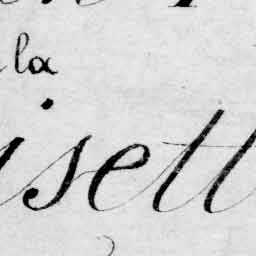 la
isett